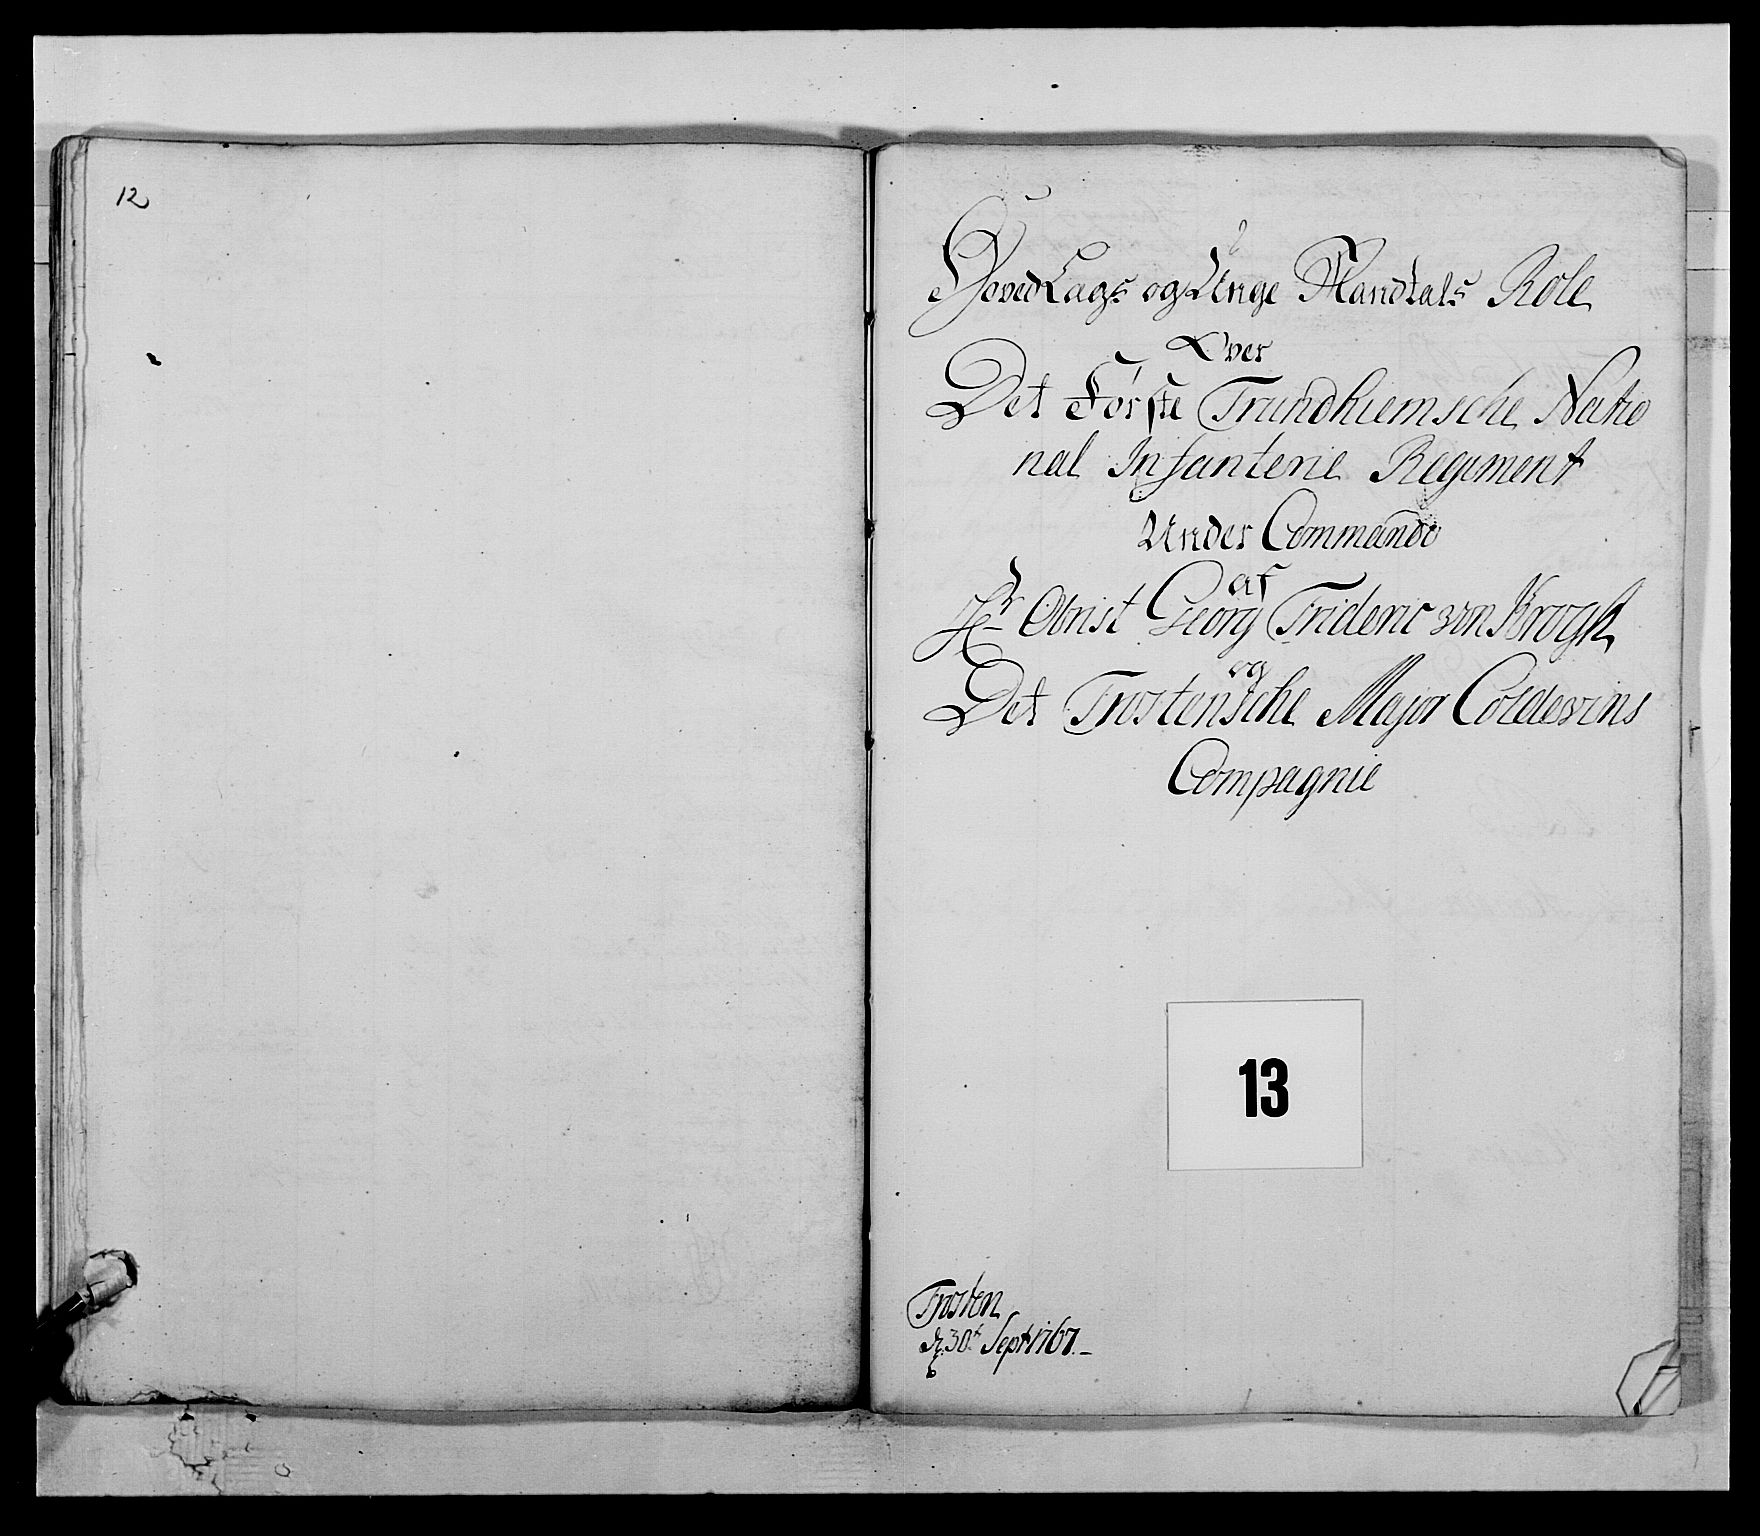 12
Hoved Lags og Unge Mandtals Role
Over
Det Første Trundhiemsche Natio
nal Infanterie Regiment
Under Commando
af
Hr Obrist Georg Frideric von Krogh
og
Det Frostensche Major Coldevins
Compagnie
13
Frosten
d: 30t Sept 1767.